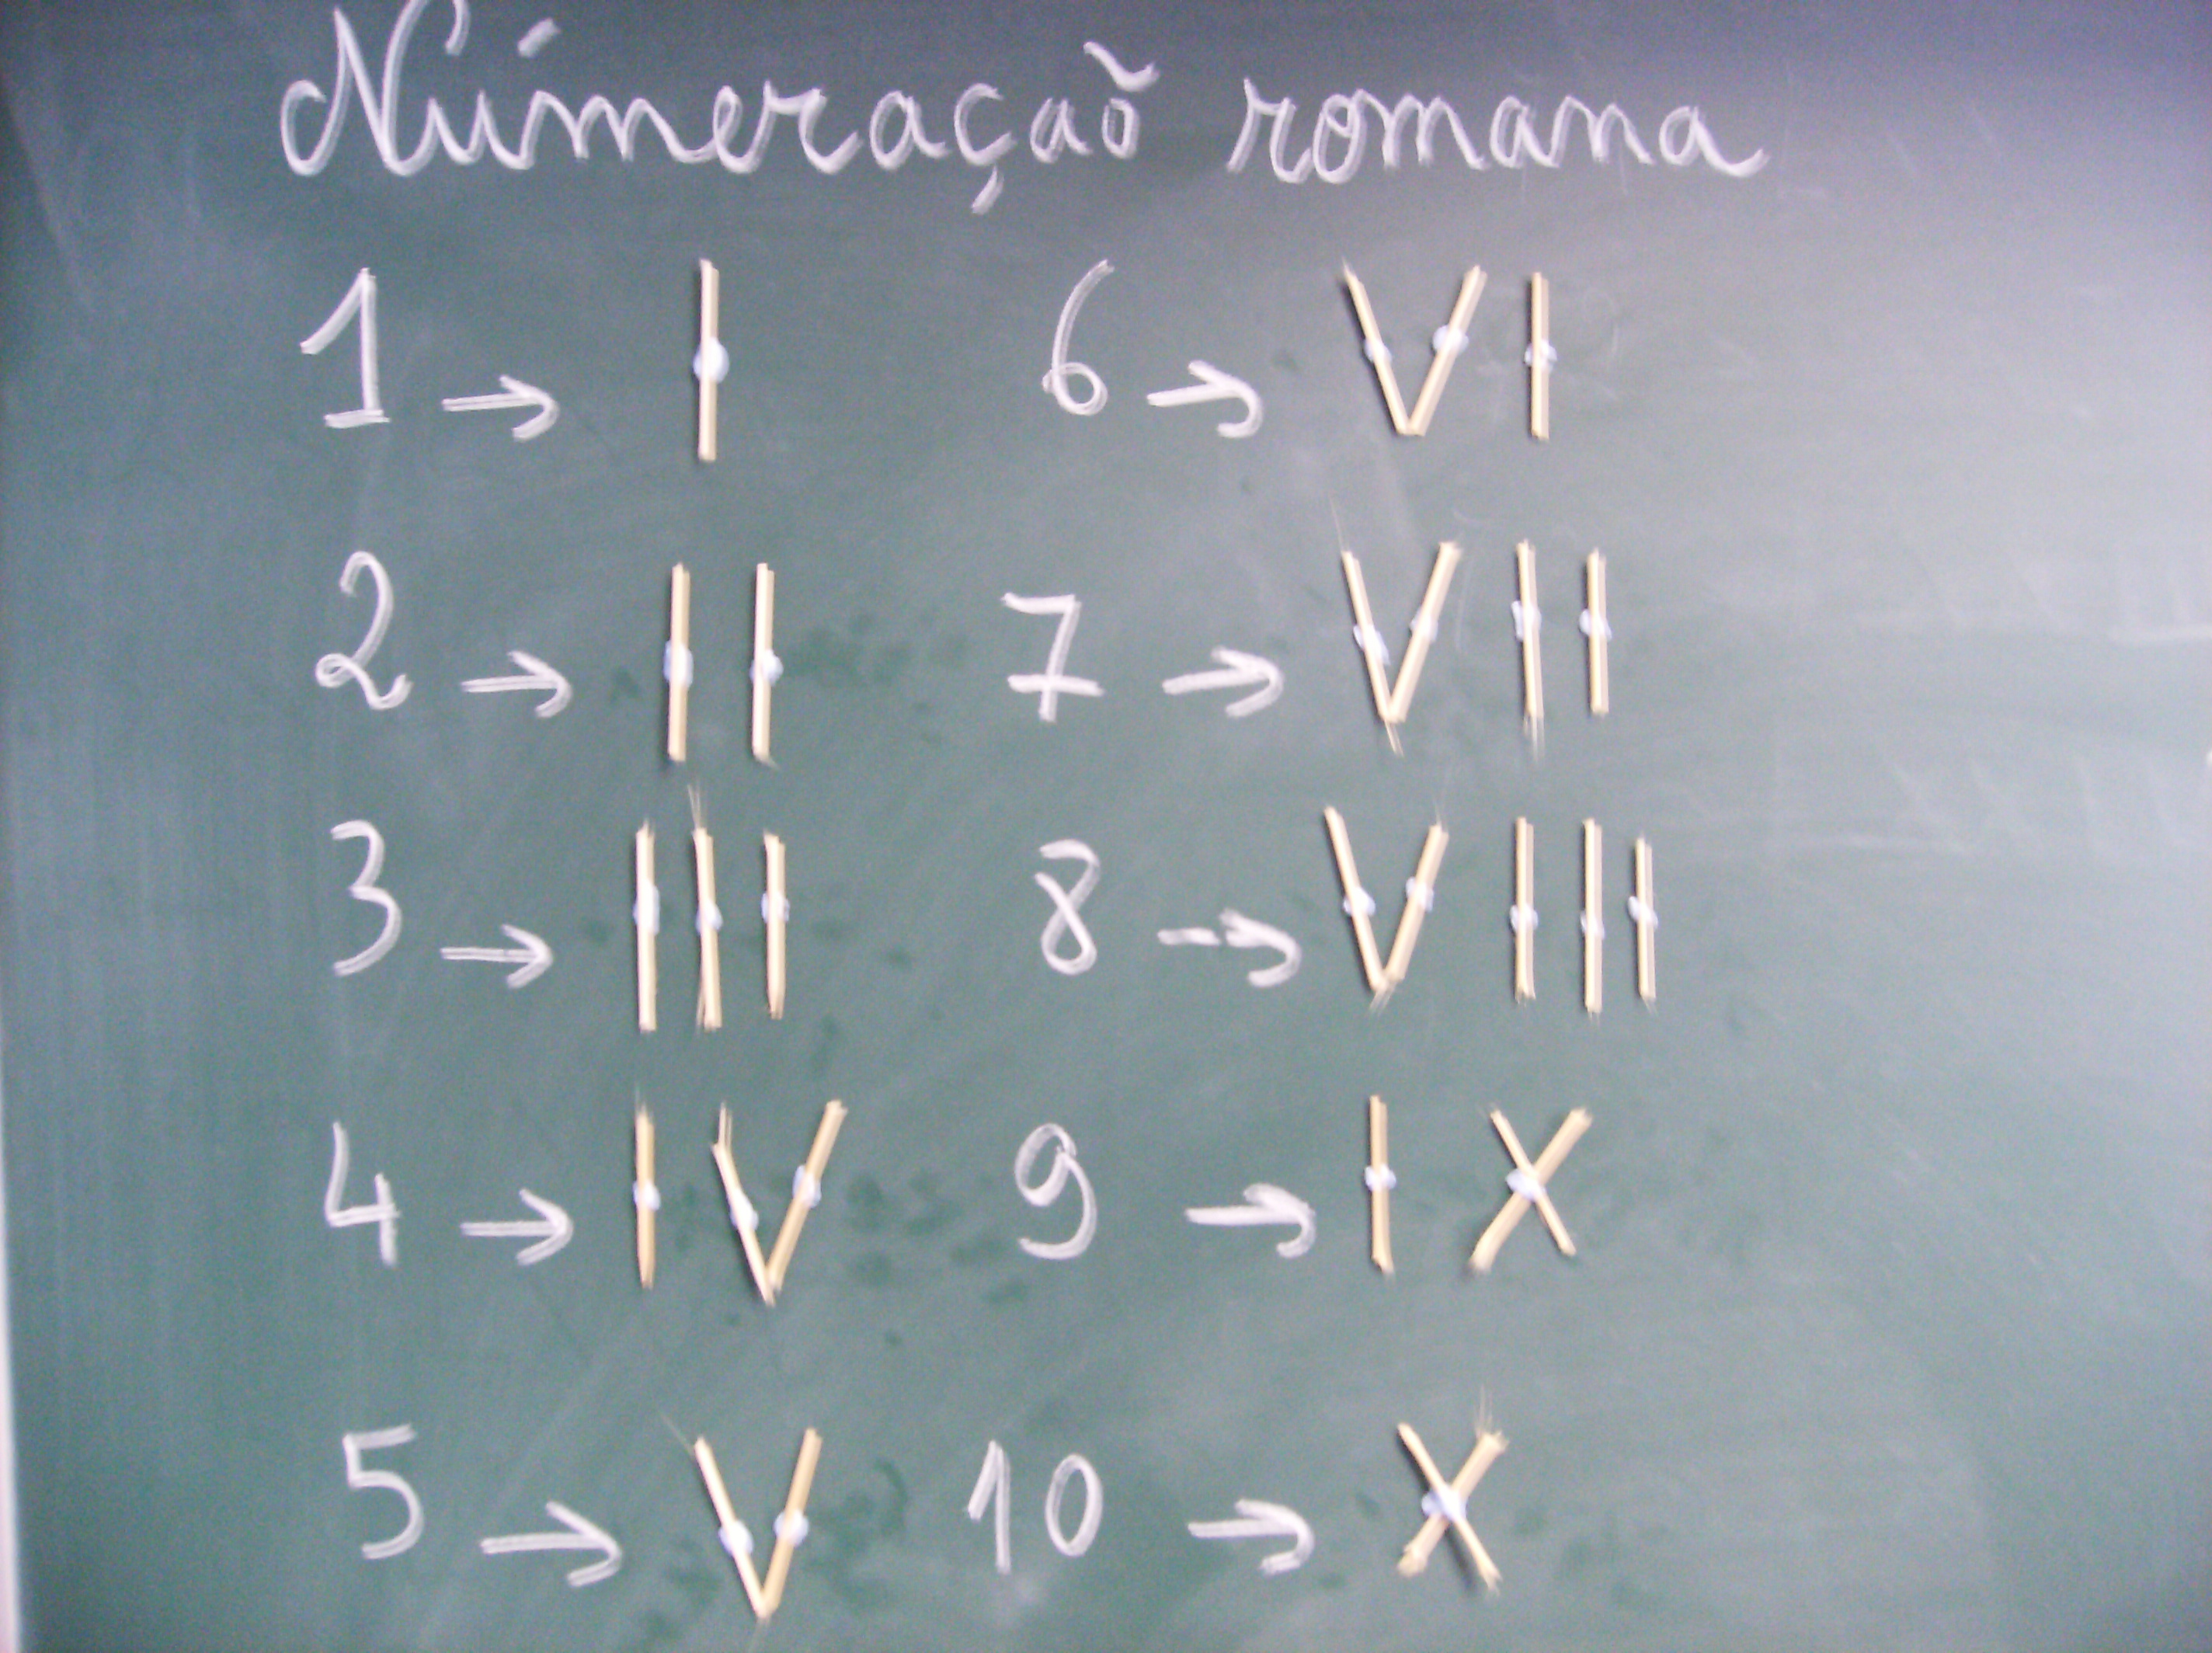 Númeração romana
1 → I 6 → VI
2 → II 7 → VII
3 → III 8 → VIII
4 → IV 9 → IX
5 → V 10 → X